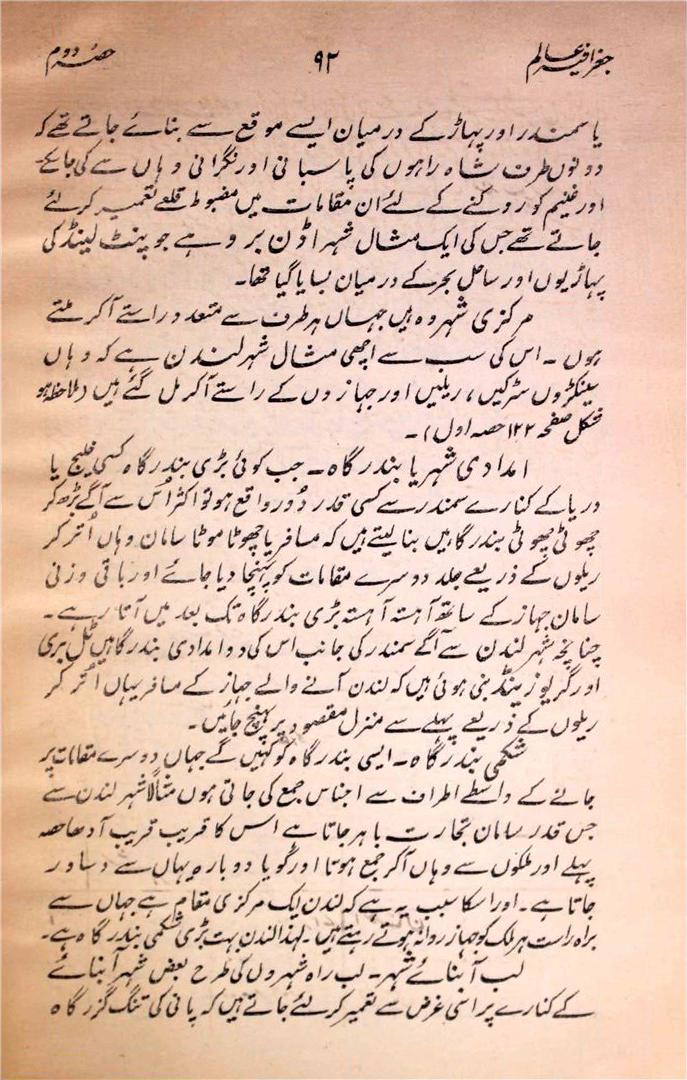 جغرافیہ عالم
۹۲
حصہ دوم
یا سمندر اور پہاڑ کے درمیان ایسے موقع سے بنائے جاتے تھے کہ
دونوں طرف شاہ راہوں کی پاسبانی اور نگرانی وہاں سے کی جاسکے
اور غنیم کو روکنے کے لئے ان مقامات میں مضبوط قلعے تعمیر کرلئے
جاتے تھے جس کی ایک مثال شہر اڈن برو ہے جو پنٹ لینڈ کی
پہاڑیوں اور ساحل بحر کے درمیان بسایا گیا تھا۔
مرکزی شہر وہ ہیں جہاں ہر طرف سے متعدد راستے آکر ملتے
ہوں ۔ اس کی سب سے اچھی مثال شہر لندن ہے کہ وہاں
سینکڑوں سڑکیں، ریلیں اور جہازوں کے راستے آکر مل گئے ہیں (ملاحظہ ہو
شکل صفحہ ۱۲۲ حصہ اول)۔
امدادی شہر یا بندرگاہ۔ جب کوئی بڑی بندرگاہ کسی خلیج یا
دریا کے کنارے سمندر سے کسی قدر دُور واقع ہو تو اکثر اُس سے آگے بڑھ کر
چھوٹی چھوٹی بندرگاہیں بنا لیتے ہیں کہ مسافر یا چھوٹا موٹا سامان وہاں اُتر کر
ریلوں کے ذریعے جلد دوسرے مقامات کو پہنچا دیا جائے اور باقی وزنی
سامان جہاز کے ساتھ آہستہ آہستہ بڑی بندرگاہ تک بعد میں آتا رہے ۔
چنانچہ شہر لندن سے آگے سمندر کی جانب اس کی دو امدادی بندرگاہیں ٹل بری
اور گریوزینڈ بنی ہوئی ہیں کہ لندن آنے والے جہاز کے مسافر یہاں اُتر کر
ریلوں کے ذریعے پہلے سے منزل مقصود پر پہنچ جائیں۔
شکمی بندرگاہ۔ ایسی بندرگاہ کو کہیں گے جہاں دوسرے مقامات پر
جانے کے واسطے اطراف سے اجناس جمع کی جاتی ہوں مثلاً شہر لندن سے
جس قدر سامان تجارت باہر جاتا ہے اس کا قریب قریب آدھا حصہ
پہلے اور ملکوں سے وہاں آکر جمع ہوتا اور گویا دوبارہ یہاں سے دساور
جاتا ہے ۔ اور اسکا سبب یہ ہے کہ لندن ایک مرکزی مقام ہے جہاں سے
براہ راست ہر ملک کو جہاز روانہ ہوتے رہتے ہیں ۔ لہذا لندن بہت بڑی شکمی بندرگاہ ہے۔
لب آبنائے شہر۔ لب راہ شہروں کی طرح بعض شہر آبنائے
کے کنارے پر اسی غرض سے تعمیر کرلئے جاتے ہیں کہ پانی کی تنگ گزرگاہ